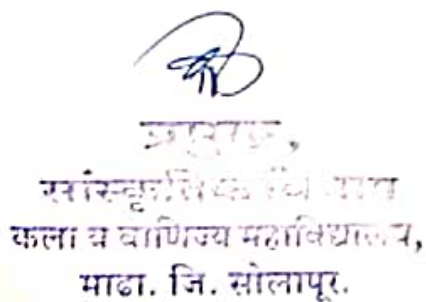 सांस्कृतिक विभाग
कला व वाणिज्य महाविद्यालय,
माढा. जि. सोलापूर.